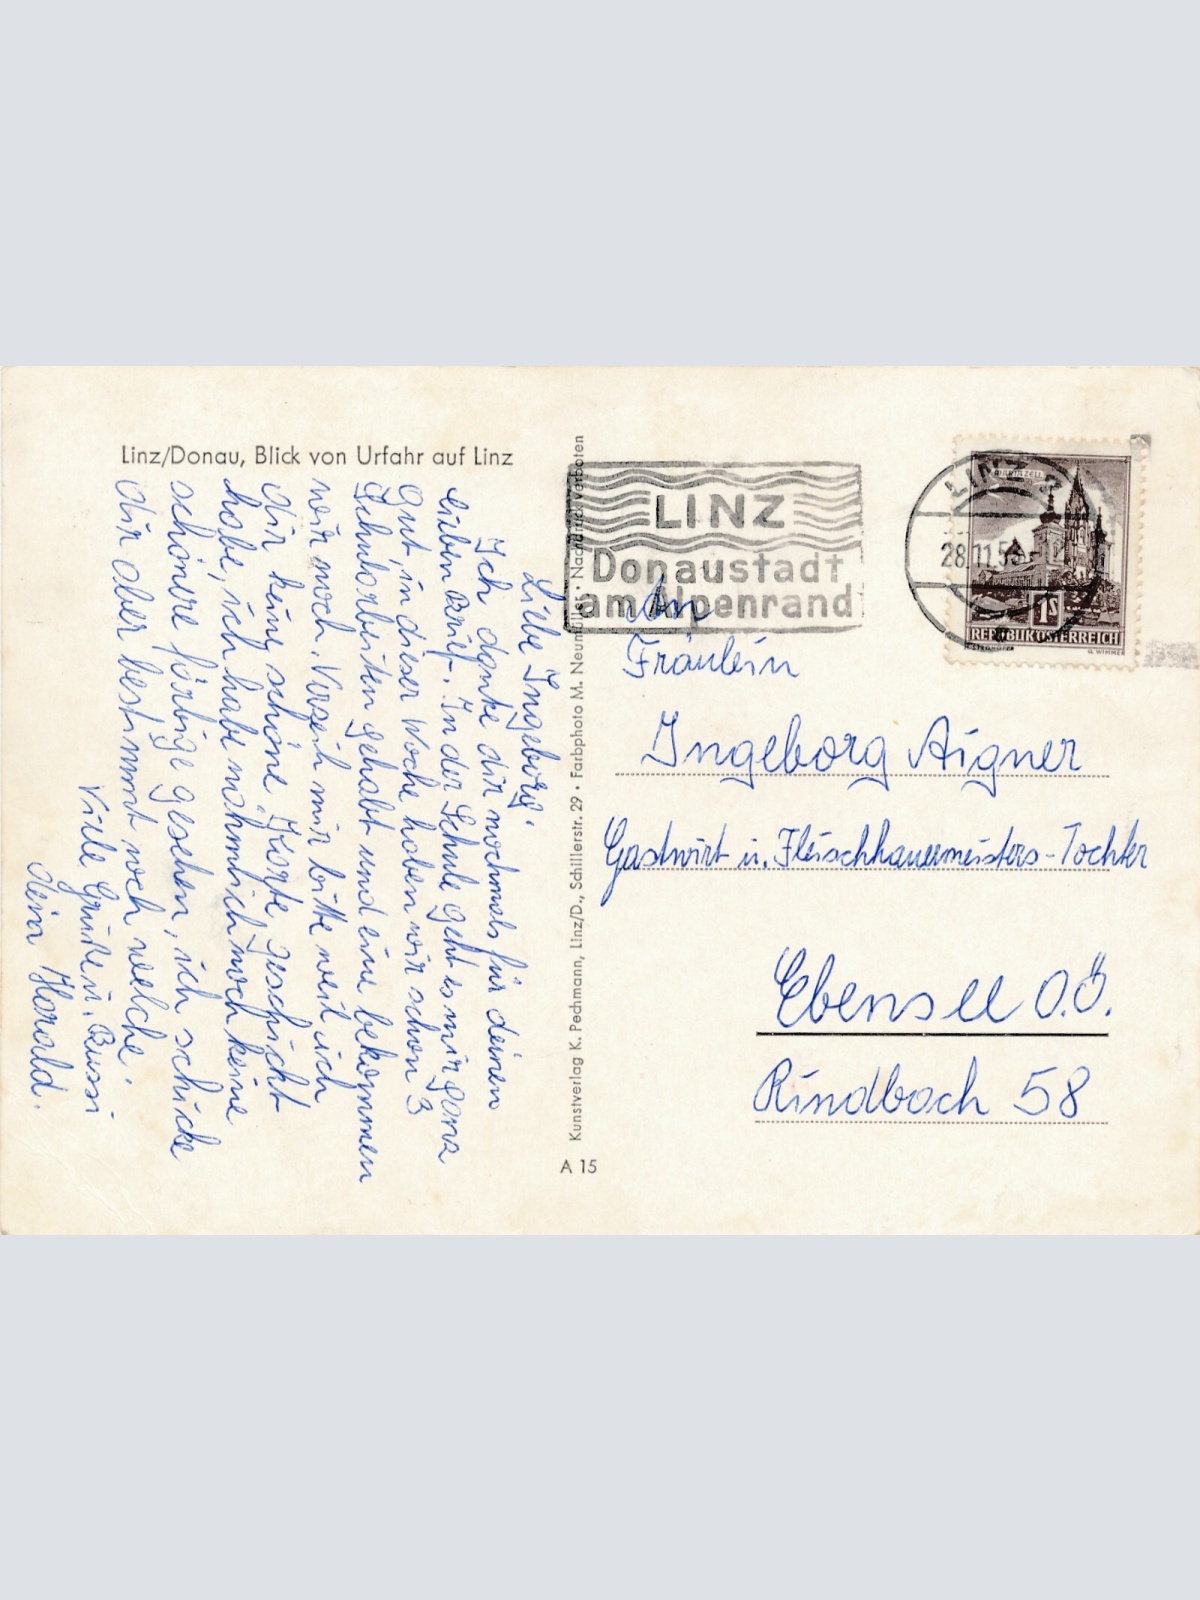 Linz/Donau, Blick von Urfahr auf Linz
Liebe Ingeborg!
Ich danke dir nochmals für deinen
lieben Brief. In der Schule geht es mir ganz
gut, in dieser Woche haben wir schon 3
Schularbeiten gehabt und eine bekommen
wir noch. Verzeih mir bitte weil ich
dir keine schöne Karte geschickt
habe, ich habe nähmlich noch keine
schönere färbige gesehen, ich schicke
dir aber bestimmt noch welche.
Viele Grüße u. Bussi
dein Harald.
Kunstverlag K. Pechmann, Linz/D., Schillerstr. 29 · Farbphoto M. Neumüller · Nachdruck verboten
A 15
LINZ
Donaustadt
am Alpenrand
LINZ 2
28.11.5
MARIAZELL
1S
REPUBLIK ÖSTERREICH
G. WIMMER
An
Fräulein
Ingeborg Aigner
Gastwirt u. Fleischhauermeisters-Tochter
Ebensee O.Ö.
Rindbach 58